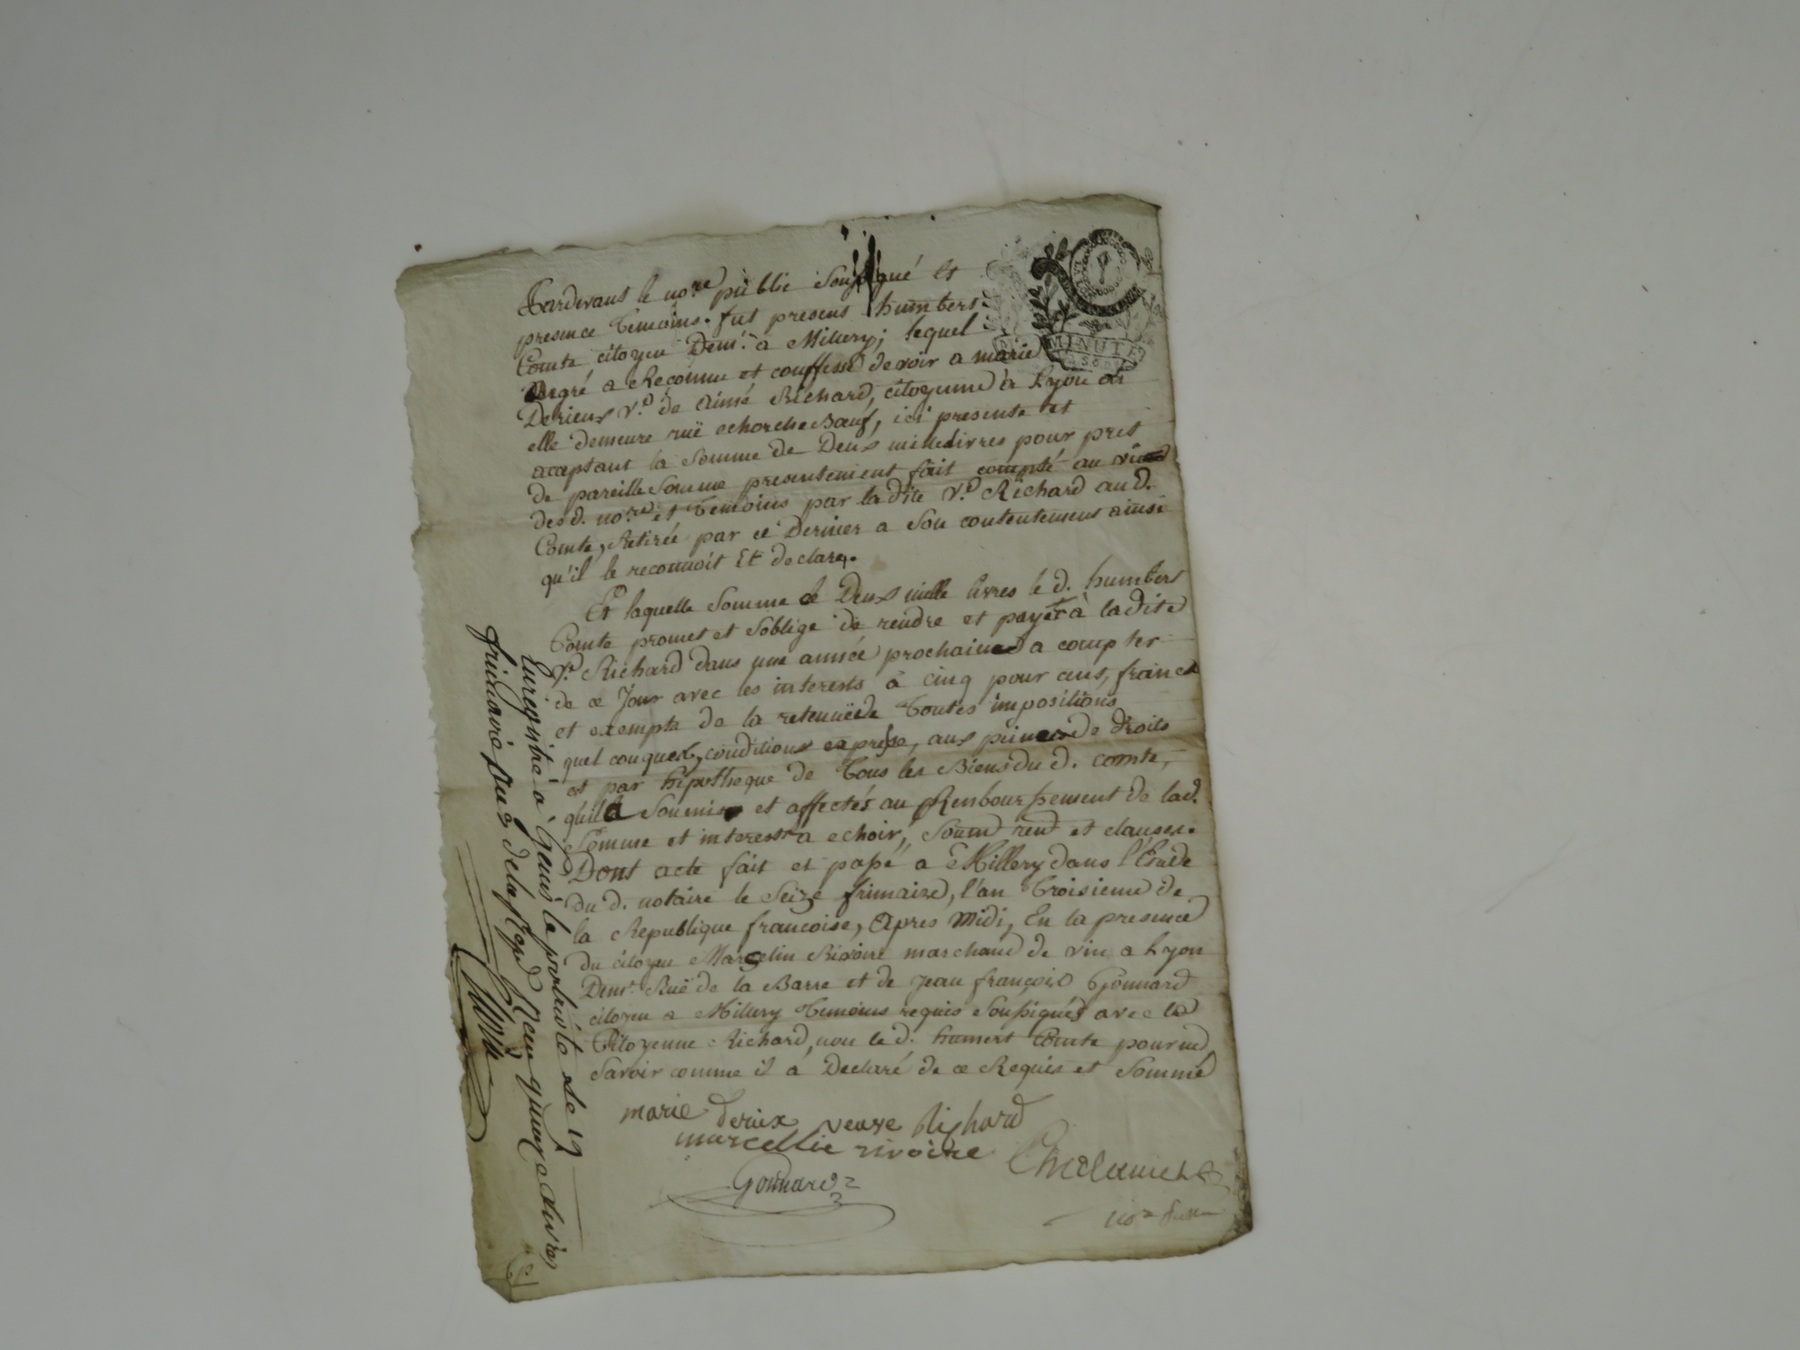 Pardevant le no.re public Soussigné et
presence temoins. fut present humbert
Comte citoyen Dem.t à Millery; lequel
Degré a Reconnu et conffessé devoir a marie
Derieux V.e de Aimé Richard, citoyenne à Lyon ou
elle demeure ruë echorche Boeuf, ici presente et
acceptant la Somme de Deux mille livres pour pret
de pareille Somme presentement fait compté au vüe
des d. no.re et Temoins par la dite V.e Richard au d.
Comte, Retirée par ce Dernier a Son contentement ainsi
qu'il le reconnoit Et declare.
Et laquelle Somme de Deux mille livres le d. humbert
Comte promet et soblige de rendre et payer à la dite
V.e Richard dans une année prochaine a compter
de ce Jour avec les interests à cinq pour cent, francs
et exempts de la retenuë de Toutes impositions
quelconques, conditions expresse, aux peines de droits
et par hipotheque de Tous les Biens du d. comte,
quil a Soumis et affectés au Renboursement de lad.
Somme et interests a echoir, Soumd. rend et clauses.
Dont acte fait et passé a Millery dans l'Etude
du d. notaire le Seize frimaire, l'an Troisieme de
la Republique francoise, Apres Midi, En la presence
du citoyen Marcelin Rivoire marchand de vin a Lyon
Dem.t Ruë de la Barre et de jean françois Gonnard
citoyen a Millery Temoins requis Soussignés avec la
Citoyenne Richard, non le d. humbert Comte pour ne
Savoir comme il a Declaré de ce Requis et Sommé
marie derieux veuve Richard
marcellin rivoire
Gonnard
no.re
Enregistré à Genis le patriote le 19
frimaire an 3 de la Rep. Reçu quinze livres
MINUTE